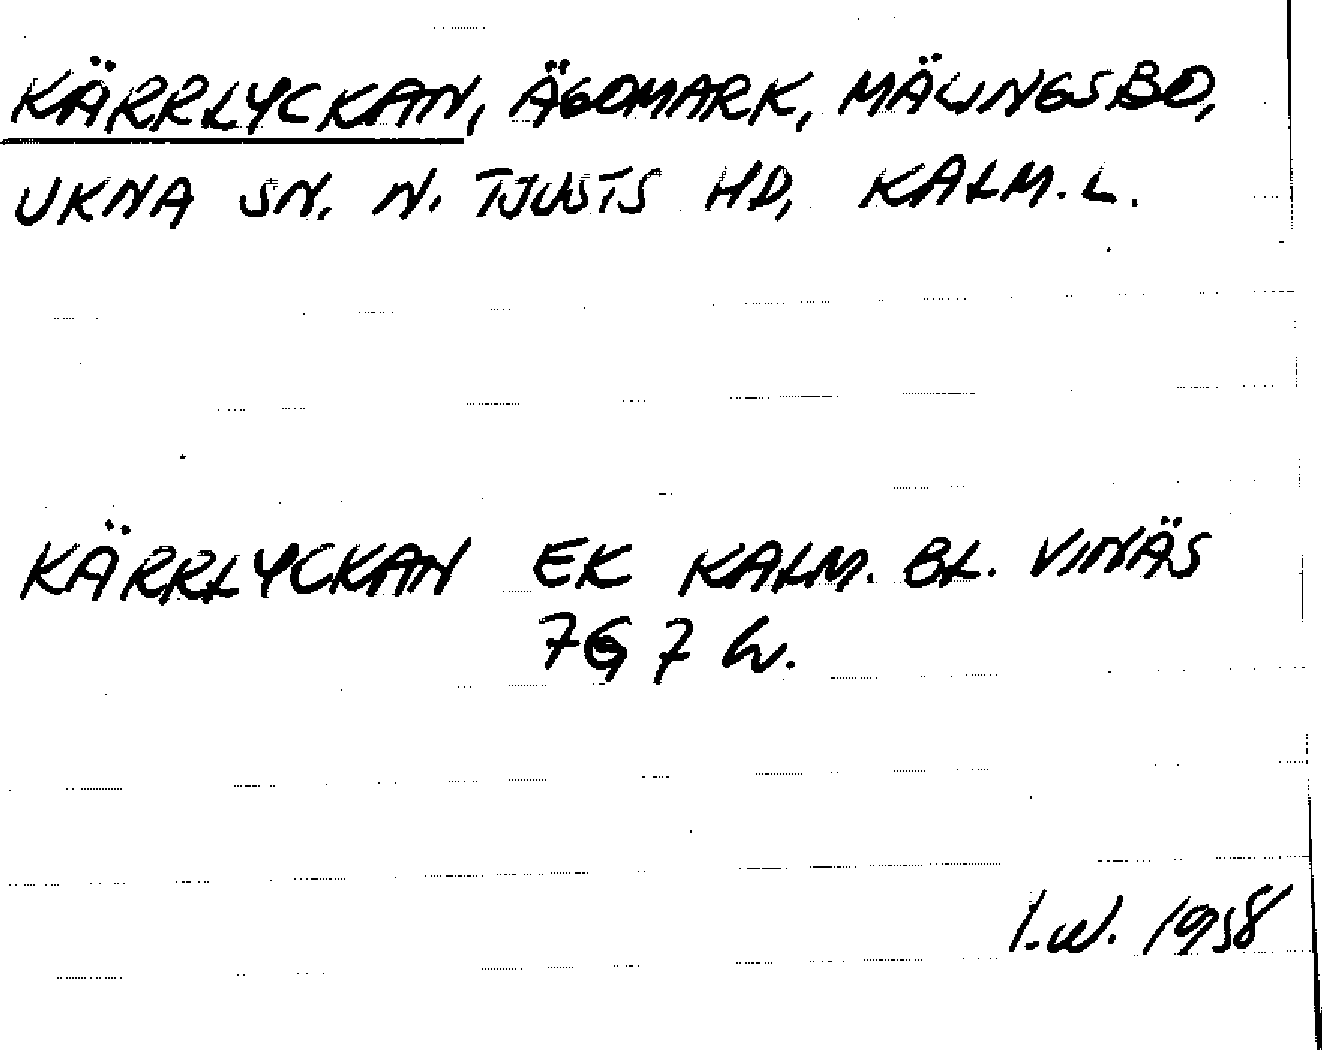 KÄRRLYCKAN, ÄGOMARK, MÄLINGSBO,
UKNA SN. N. TJUSTS HD, KALM. L.
KÄRRLYCKAN EK KALM. BL. VINÄS
7G 7 h.
I.W. 1958